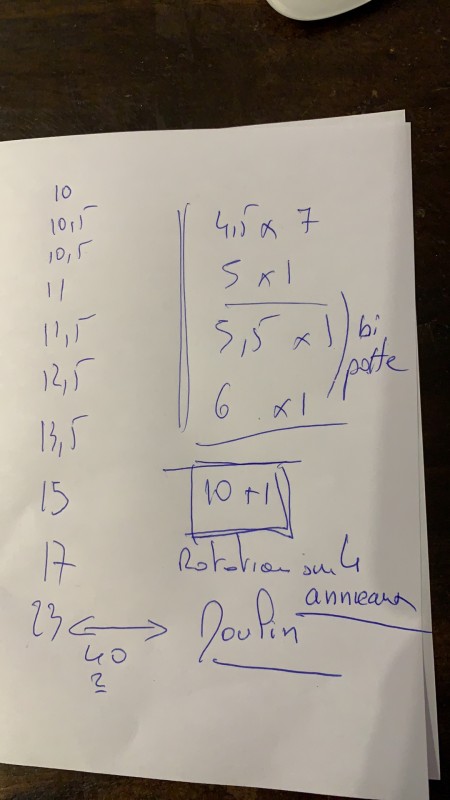 10
10,5
10,5
11
11,5
12,5
13,5
15
17
23
40
2
4,5 x 7
5 x 1
5,5 x 1
6 x 1
bi
patte
10 + 1
Rotation sur 4
anneaux
Moulin